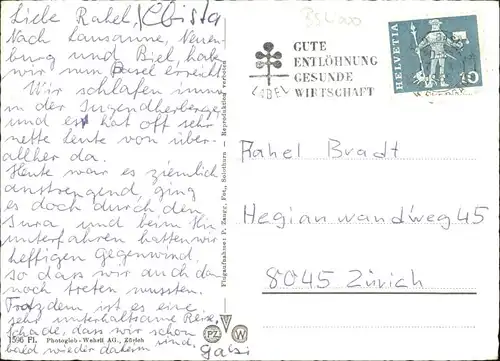 Liebe Rahel, Christa
Nach Lausanne, Neuen-
burg und Biel, haben
wir nun Basel erreicht
Wir schlafen immer
in der Jugendherberge,
und es hat oft sehr
nette leute von über-
allher da.
Heute war es ziemlich
anstrengend, ging
es doch durch den
Jura und beim Hin-
unterfahren hatten wir
heftigen Gegenwind,
so dass wir auch da
noch treten mussten.
Trotzdem ist es eine
sehr unterhaltsame Reise,
schade, dass wir schon
bald wieder daheim sind,
Gabi
1596 Fl. Photoglob-Wehrli AG., Zürich
Flugaufnahme: P. Zaugg, Fot., Solothurn — Reproduktion verboten
PZ W
GUTE
ENTLÖHNUNG
GESUNDE
WIRTSCHAFT
LABEL
HELVETIA
10
Rahel Bradt
Hegianwandweg 45
8045 Zürich